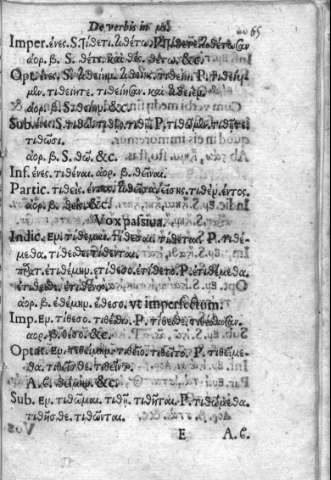 De verbis in μι 65
Imper. ένες. S. τίθετι. τιθέτω. P. τίθετε. τιθέτωσαν
ἀορ. β. S. θέτι. καὶ θές. θέτω. &c.
Opt. ένες. S. τιθείην. τιθείης. τιθείη. P. τιθείη-
μεν. τιθείητε. τιθείησαν. καὶ τιθεῖεν.
ἀορ. β. S. θείην. &c.
Sub. ένες. S. τιθῶ. τιθῇς. τιθῇ. P. τιθῶμεν. τιθῆτε
τιθῶσι.
ἀορ. β. S. θῶ. &c.
Inf. ένες. τιθέναι. ἀορ. β. θεῖναι.
Partic. τιθείς. έντος. τιθεῖσα. είσης. τιθέν. έντος.
ἀορ. β. θείς. &c.
Vox passiva.
Indic. Εμ. τίθεμαι. τίθεσαι. τίθεται. P. τιθέ-
μεθα. τίθεσθε. τίθενται.
παρατ. ἐτιθέμην. ἐτίθεσο. ἐτίθετο. P. ἐτιθέμεθα.
ἐτίθεσθε. ἐτίθεντο.
ἀορ. β. ἐθέμην. ἔθεσο. ut imperfectum.
Imp. Εμ. τίθεσο. τιθέσθω. P. τίθεσθε. τιθέσθωσαν.
ἀορ. β. θέσο. &c.
Optat. Εμ. τιθείμην. τιθεῖο. τιθεῖτο. P. τιθείμε-
θα. τιθεῖσθε. τιθεῖντο.
Α. β. θείμην. &c.
Sub. Εμ. τιθῶμαι. τιθῇ. τιθῆται. P. τιθώμεθα.
τιθῆσθε. τιθῶνται.
E Α. β.